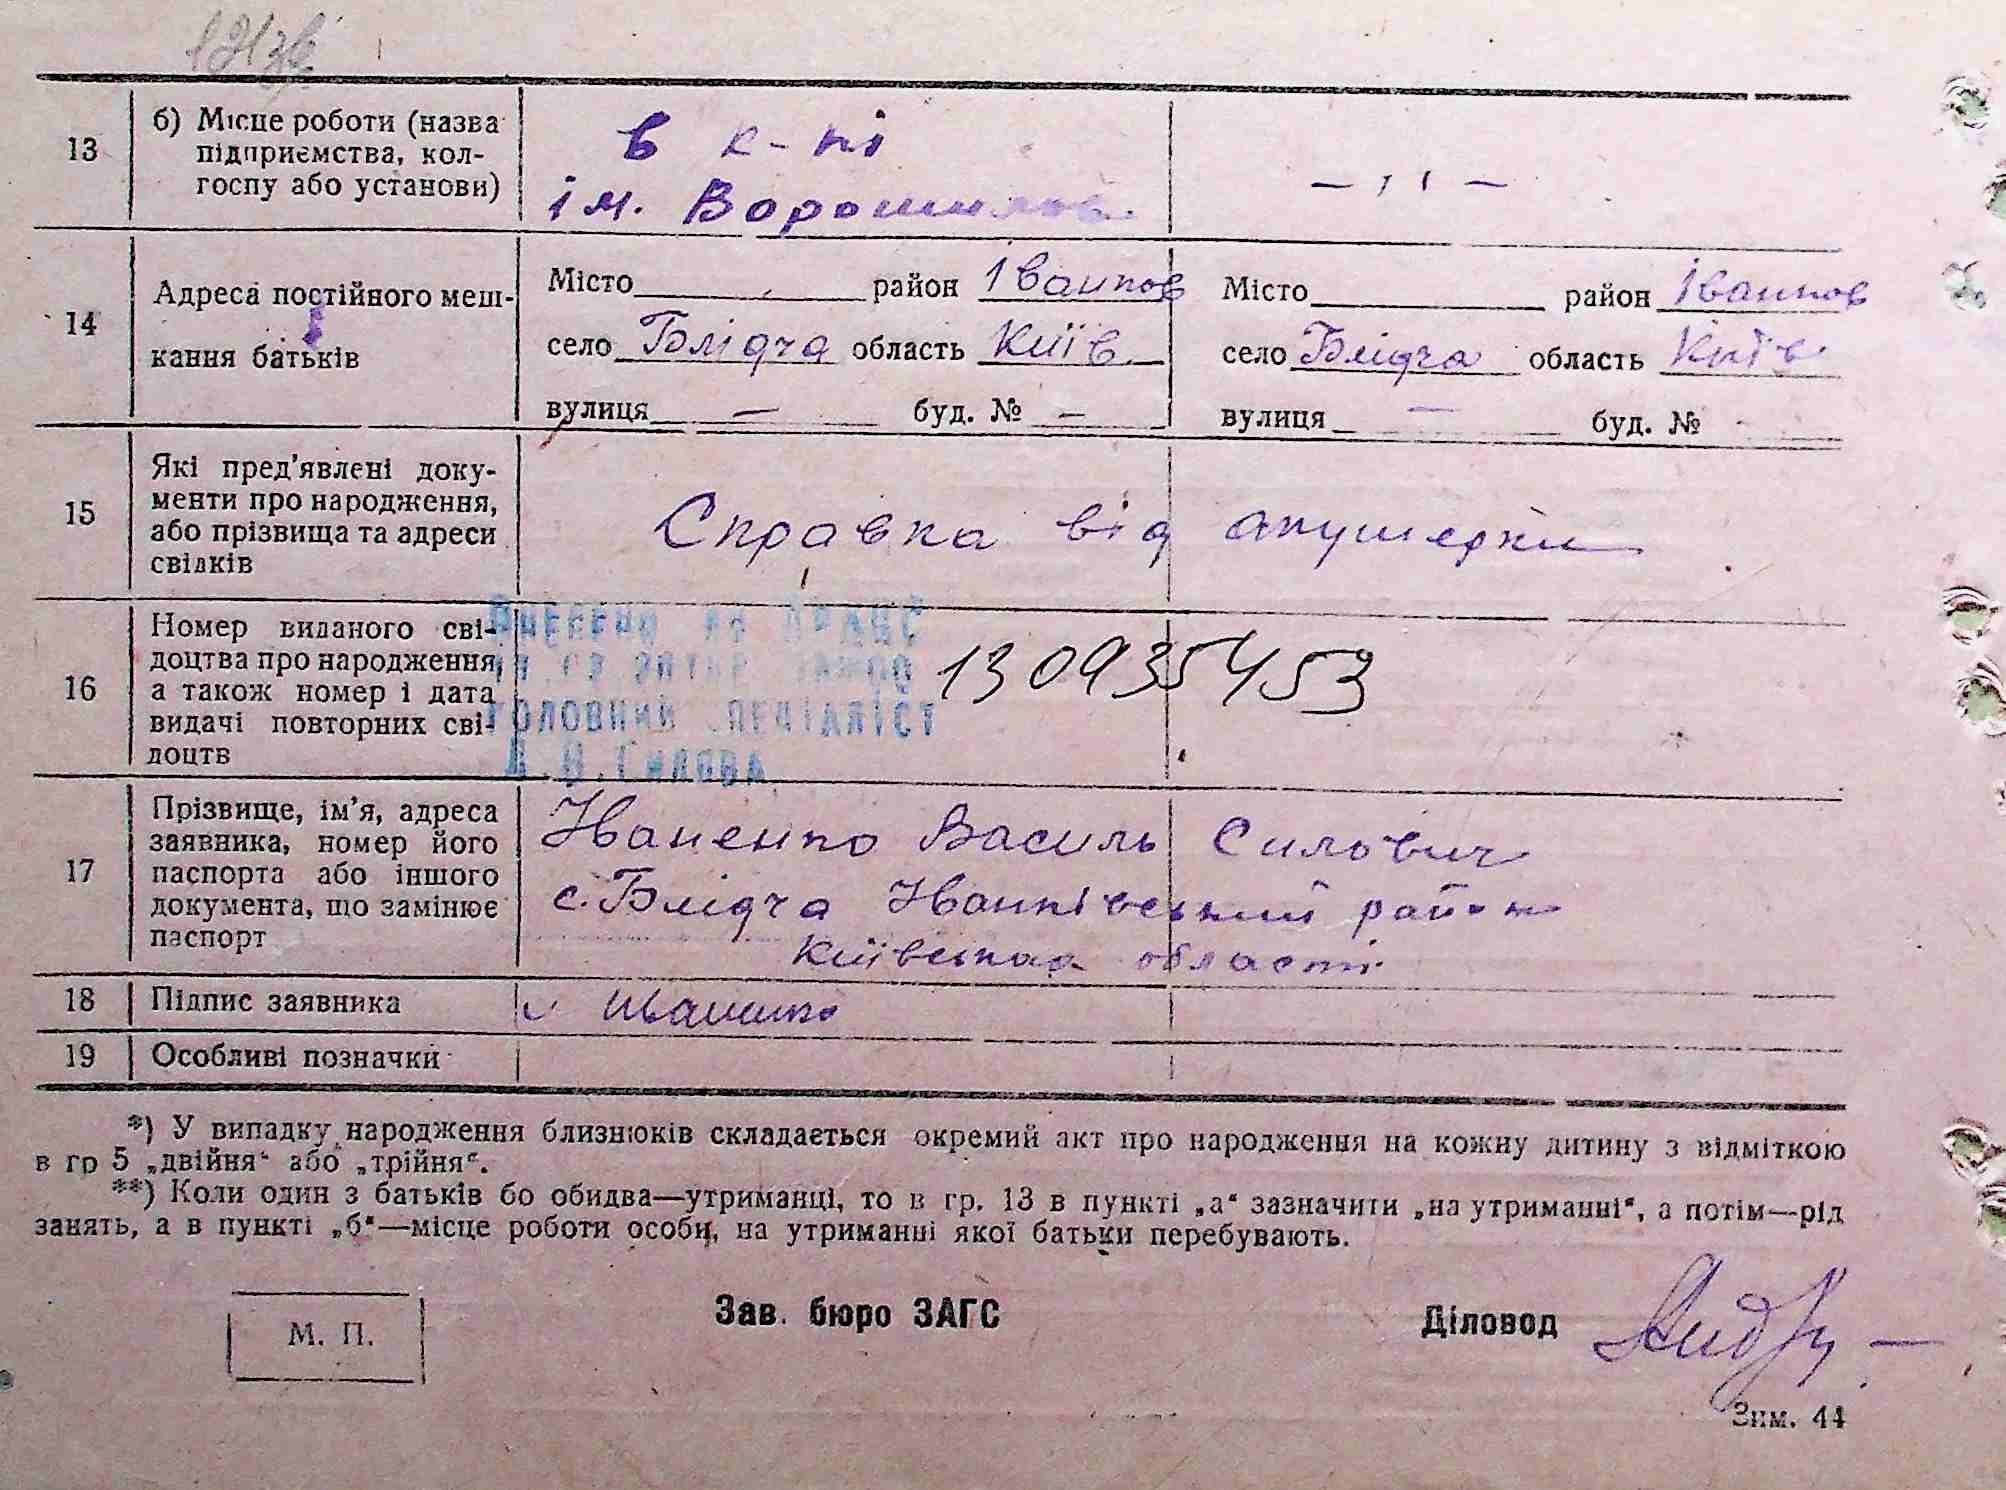 121зв
13
б) Місце роботи (назва
підприємства, кол-
госпу або установи)
в к-пі
ім. Ворошилов
— ,, —
14
Адреса постійного меш-
кання батьків
Місто район Іванков
село Блідча область Київ.
вулиця — буд. № —
Місто район Іванков
село Блідча область Київ
вулиця — буд. №
15
Які пред'явлені доку-
менти про народження,
або прізвища та адреси
свідків
Справка від акушерки
16
Номер виданого сві-
доцтва про народження,
а також номер і дата
видачі повторних сві-
доцтв
Внесено до ДРАЦС
головний спеціаліст
130935453
17
Прізвище, ім'я, адреса
заявника, номер його
паспорта або іншого
документа, що замінює
паспорт
Иваненко Василь Силович
с. Блідча Иванківський район
Київська області
18
Підпис заявника
Иваненко
19
Особливі позначки
*) У випадку народження близнюків складається окремий акт про народження на кожну дитину з відміткою
в гр 5 „двійня“ або „трійня“.
**) Коли один з батьків бо обидва—утриманці, то в гр. 13 в пункті „а“ зазначити „на утриманні“, а потім—рід
занять, а в пункті „б“—місце роботи особи, на утриманні якої батьки перебувають.
М. П.
Зав. бюро ЗАГС
Діловод
Зим. 44